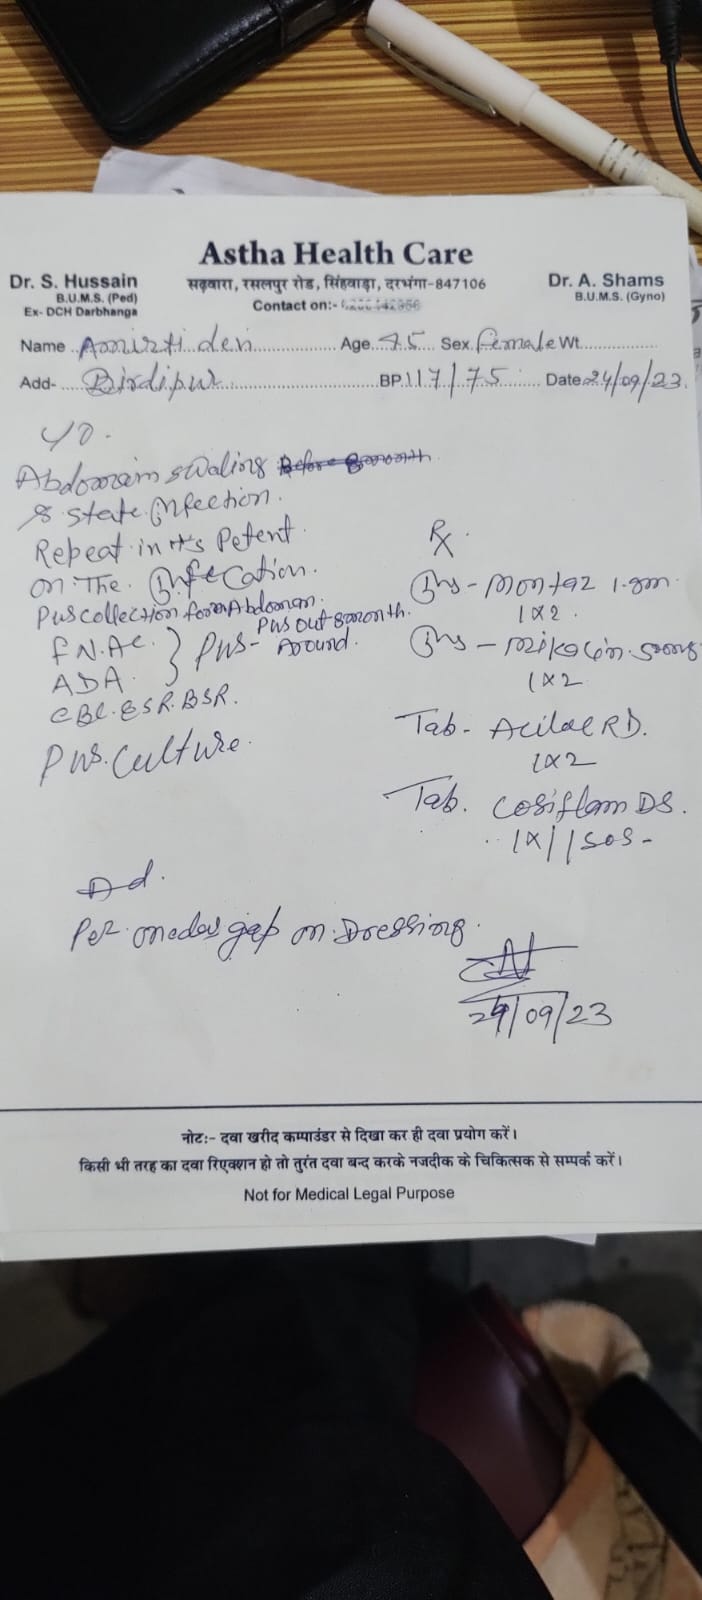 Astha Health Care
Dr. S. Hussain
B.U.M.S. (Ped)
Ex- DCH Darbhanga
सढ़वारा, रसलपुर रोड, सिंहवाड़ा, दरभंगा-847106
Contact on:-
Dr. A. Shams
B.U.M.S. (Gyno)
Name Amirti devi Age 45 Sex Female Wt
Add- Birdipur BP 117/75 Date 24/09/23
Abdomain swaling
& state infection.
Repeat in it's Petent
on The
Pus collection form Abdoman.
F.N.AC. } Pus- Pus out 8 month.
ADA. Around.
CBC. ESR. BSR.
Pus. Culture.
Rx
Inj - Montaz 1.gm.
1x2.
Inj - Mikacin
1x2
Tab- Aciloc RD.
1x2
Tab. Cosiflam DS.
1x1/sos-
Ad.
gap on Dressing.
24/09/23
नोट:- दवा खरीद कम्पाउंडर से दिखा कर ही दवा प्रयोग करें।
किसी भी तरह का दवा रिएक्शन हो तो तुरंत दवा बन्द करके नजदीक के चिकित्सक से सम्पर्क करें।
Not for Medical Legal Purpose